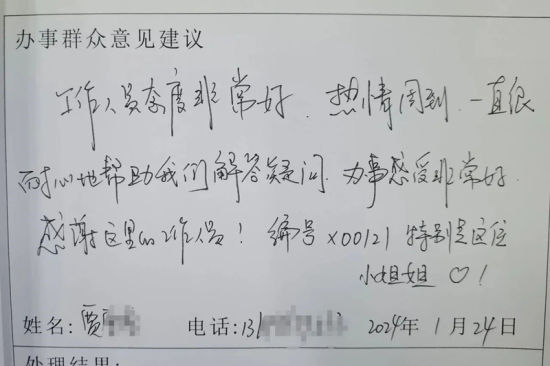 办事群众意见建议
工作人员态度非常好、热情周到、一直很
耐心地帮助我们解答疑问、办事感受非常好、
感谢这里的工作人员！编号x00121特别是这位
小姐姐♡！
姓名:贾 电话:131 2024年1月24日
处理结果: